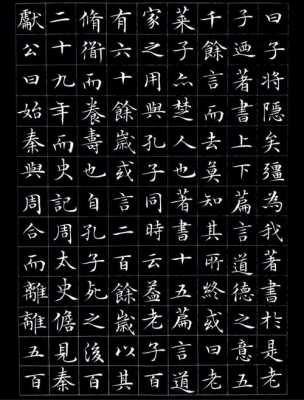 曰子將隱矣彊為我著書於是老
子迺著書上下篇言道德之意五
千餘言而去莫知其所終或曰老
萊子亦楚人也著書十五篇言道
家之用與孔子同時云益老子百
有六十餘歲或言二百餘歲以其
脩衜而養壽也自孔子死之後百
二十九年而史記周太史儋見秦
獻公曰始秦與周合而離離五百